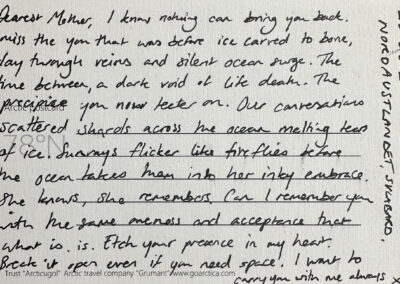 Dearest Mother, I know nothing can bring you back.
miss the you that was before ice carved to bone,
lay through veins and silent ocean surge. The
time between, a dark void of life death. The
precipice you now teeter on. Our conversations
Arctic postcard
scattered shards across the ocean melting tears
78°N
of ice. Sunrays flicker like fireflies before
the ocean takes them into her inky embrace.
She knows, she remembers. Can I remember you
with the same oneness and acceptance that
what is, is. Etch your presence in my heart.
Break it open even if you need space. I want to
Trust "Arcticugol" Arctic travel company "Grumant" www.goarctica.com
carry you with me always x
NORDAUSTLANDET, SVALBARD.